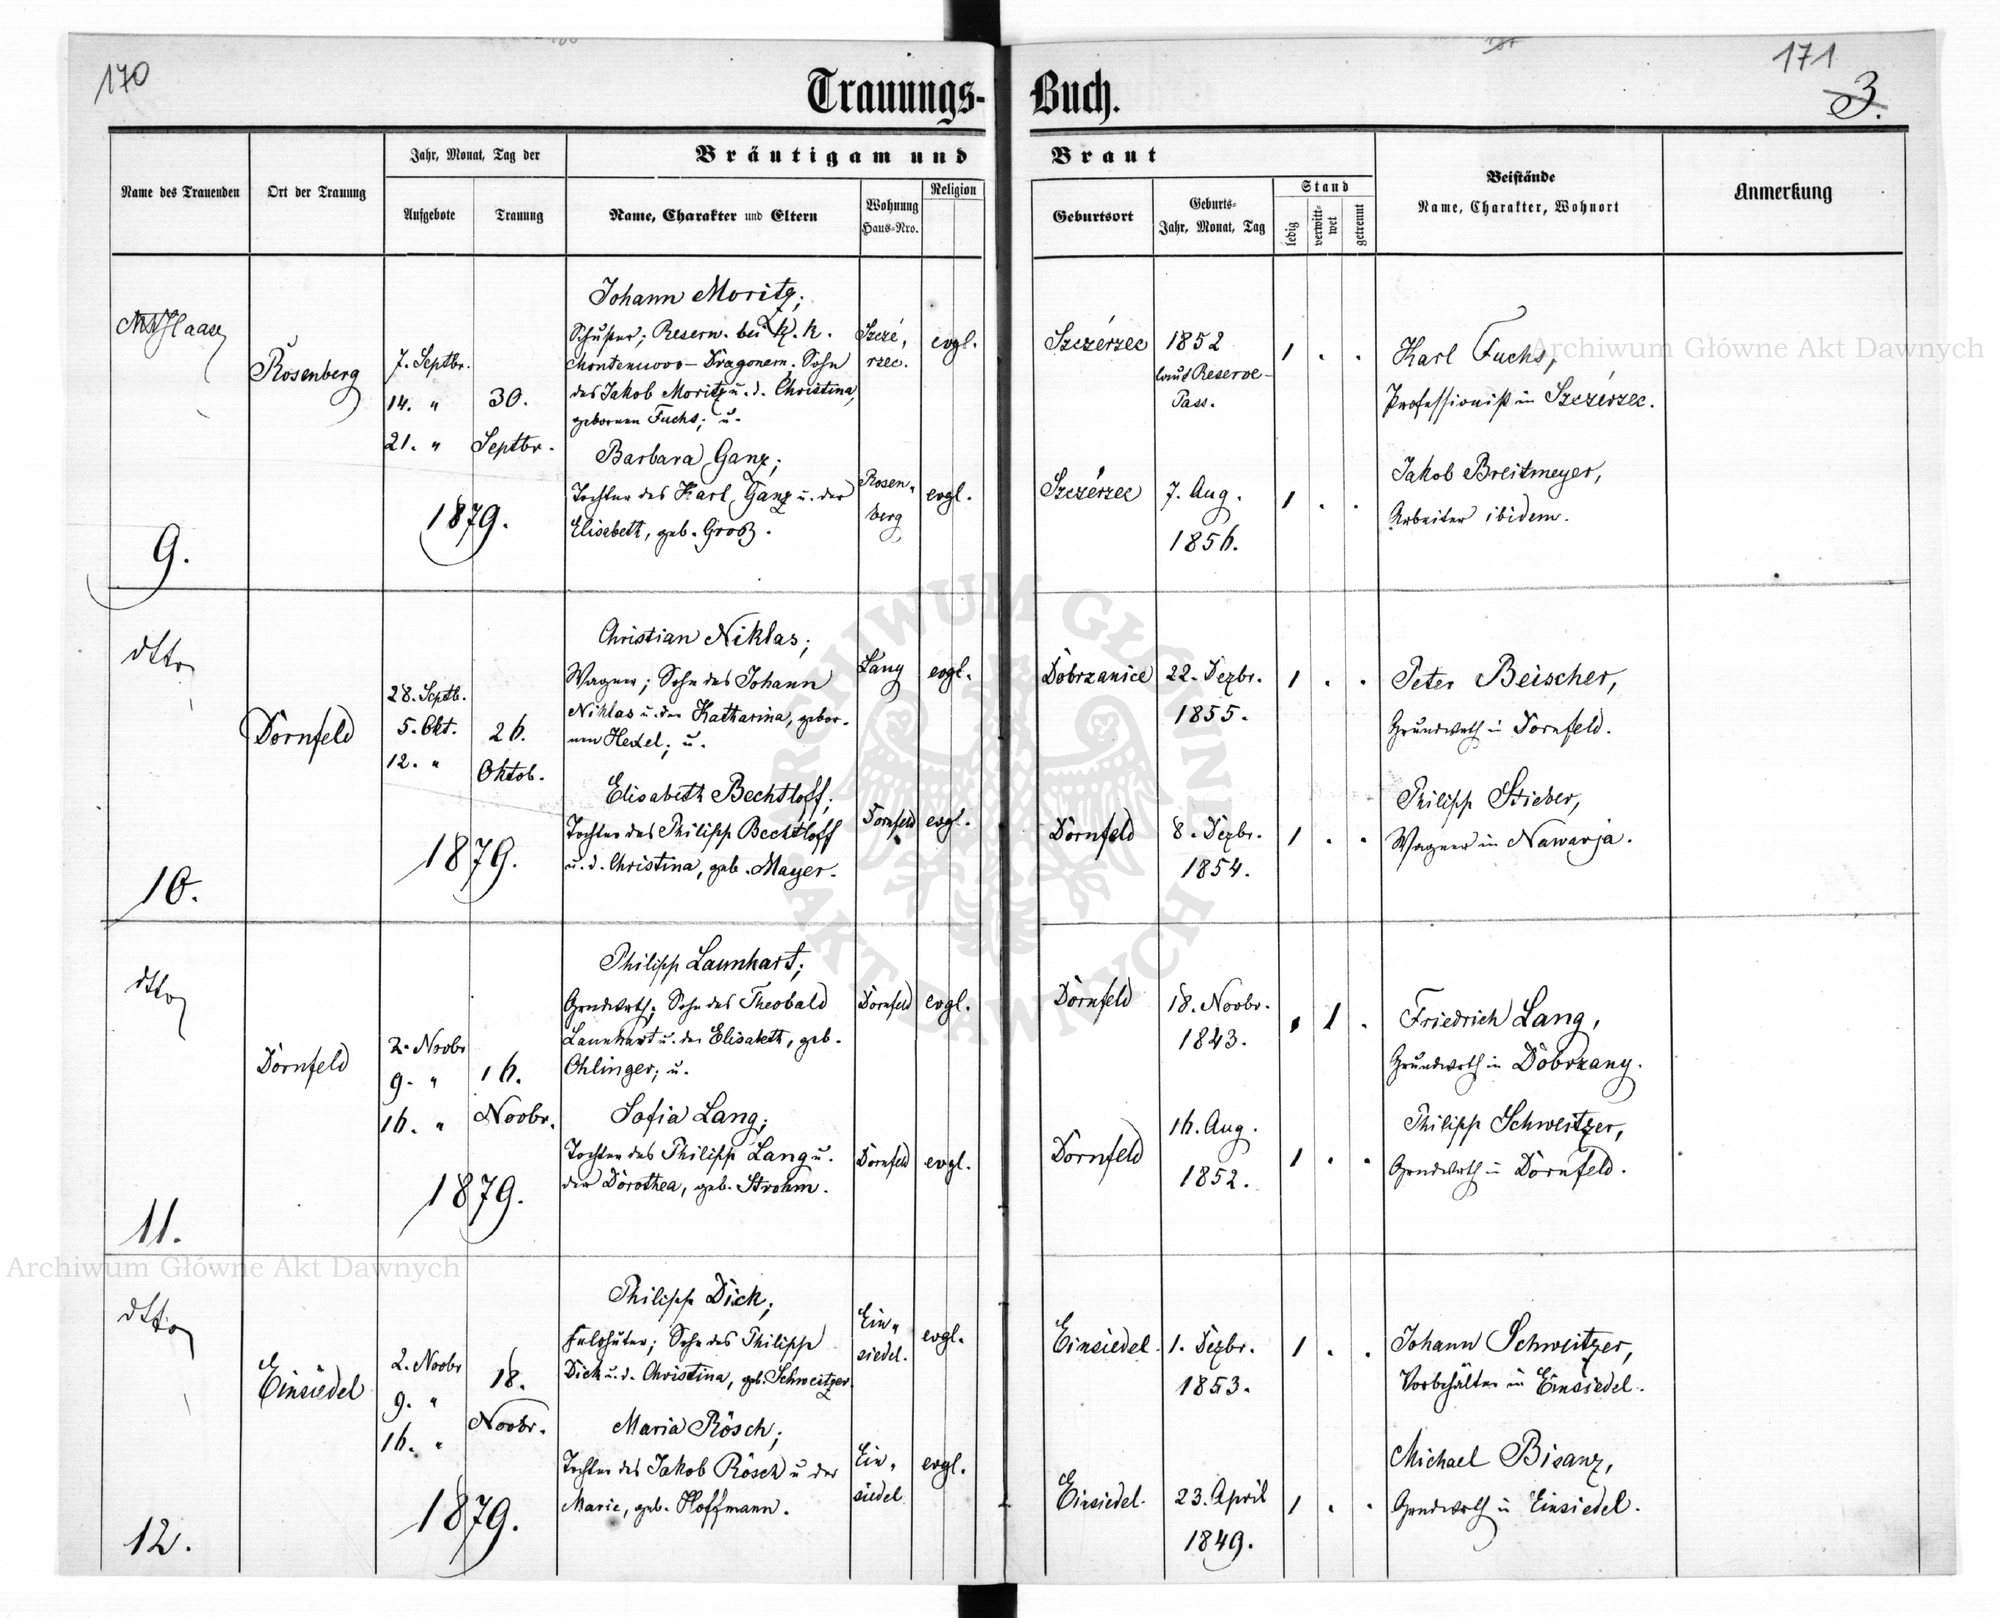 170
171
3.
Trauungs-Buch.
Name des Trauenden
Ort der Trauung
Jahr, Monat, Tag der
Aufgebote
Trauung
Bräutigam und Braut
Name, Charakter und Eltern
Wohnung
Haus-Nro.
Religion
Geburtsort
Geburts-
Jahr, Monat, Tag
Stand
ledig
verwitt-
wet
getrennt
Beistände
Name, Charakter, Wohnort
Anmerkung
Haase
9.
Rosenberg
7. Septbr.
14. "
21. "
30.
Septbr.
1879.
Johann Moritz;
Schuster; Reserv. bei k. k.
Montenuovo-Dragonern. Sohn
des Jakob Moritz u. d. Christina,
gebornen Fuchs; u.
Szczé,
rzec.
evgl.
Szczérzec
1852
laut Reserve-
Pass.
1 . .
Karl Fuchs,
Professionist in Szczérzec.
Barbara Ganz;
Tochter des Karl Ganz u. der
Elisabeth, geb. Groß.
Rosen,
berg
evgl.
Szczérzec
7. Aug.
1856.
1 . .
Jakob Breitmeyer,
Arbeiter ibidem.
dtto
10.
Dornfeld
28. Septb.
5. Okt.
12. "
26.
Oktob.
1879.
Christian Niklas;
Wagner; Sohn des Johann
Niklas u. der Katharina, gebor-
nen Hexel; u.
Lany
evgl.
Dobrzanice
22. Dezbr.
1855.
1 . .
Peter Beischer,
Grundwrth in Dornfeld.
Elisabeth Bechtloff;
Tochter des Philipp Bechtloff
u. d. Christina, geb. Mayer.
Dornfeld
evgl.
Dornfeld
8. Dezbr.
1854.
1 . .
Philipp Stieber,
Wagner in Nawarja.
dtto
11.
Dornfeld
2. Novbr
9. "
16. "
16.
Novbr.
1879.
Philipp Launhart;
Grndwrth; Sohn des Theobald
Launhart u. der Elisabeth, geb.
Ohlinger; u.
Dornfeld
evgl.
Dornfeld
18. Novbr.
1843.
. 1 .
Friedrich Lang,
Grundwrth in Dobrzany.
Sofia Lang;
Tochter des Philipp Lang u.
der Dorothea, geb. Strohm.
Dornfeld
evgl.
Dornfeld
16. Aug.
1852.
1 . .
Philipp Schweitzer,
Grndwrth in Dornfeld.
dtto
12.
Einsiedel
2. Novbr
9. "
16. "
18.
Novbr.
1879.
Philipp Dick;
Feldhüter; Sohn des Philipp
Dick u. d. Christina, geb. Schweitzer
Ein,
siedel.
evgl.
Einsiedel.
1. Dezbr.
1853.
1 . .
Johann Schweitzer,
Vorbehälter in Einsiedel.
Maria Rösch;
Tochter des Jakob Rösch u der
Marie, geb. Hoffmann.
Ein,
siedel
evgl.
Einsiedel.
23. April
1849.
1 . .
Michael Bisanz,
Grndwrth in Einsiedel.
Archiwum Główne Akt Dawnych
Archiwum Główne Akt Dawnych
ARCHIWUM GŁÓWNE AKT DAWNYCH